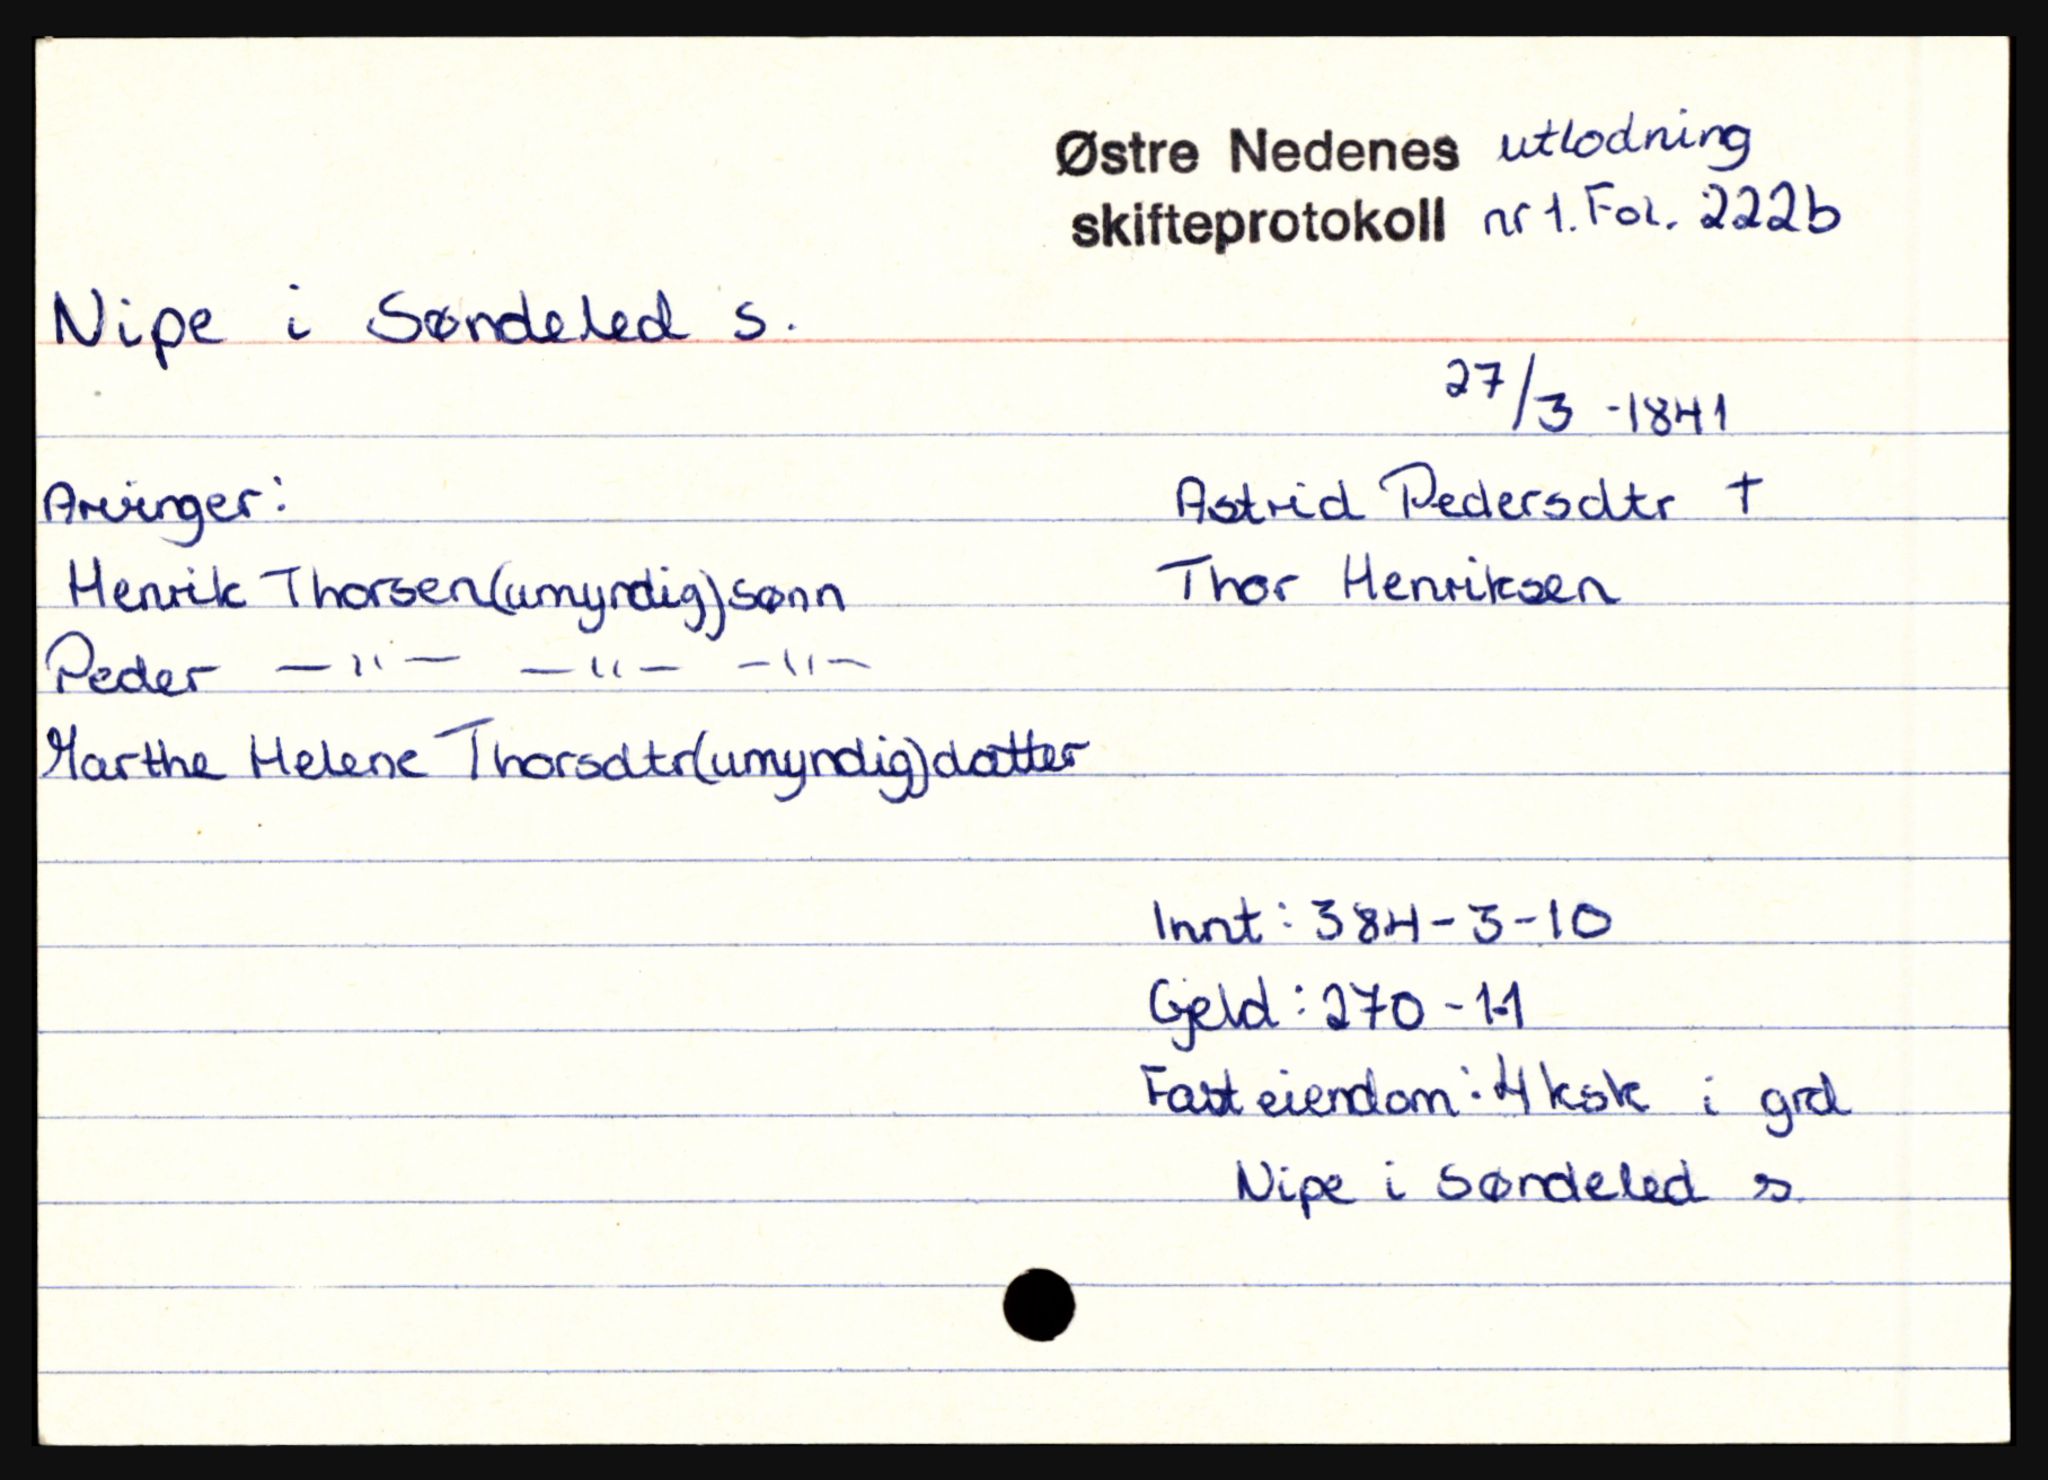 Østre Nedenes utlodning
skifteprotokoll nr 1. Fol. 222b
Nipe i Søndeled s.
27/3 -1841
Arvinger: Astrid Pedersdtr †
Henrik Thorsen (umyndig) sønn Thor Henriksen
Peder —"— —"— —"—
Marthe Helene Thorsdtr (umyndig) datter
Innt: 384-3-10
Gjeld: 270-1-1
Fast eiendom: 4 ksk i grd
Nipe i Søndeled s